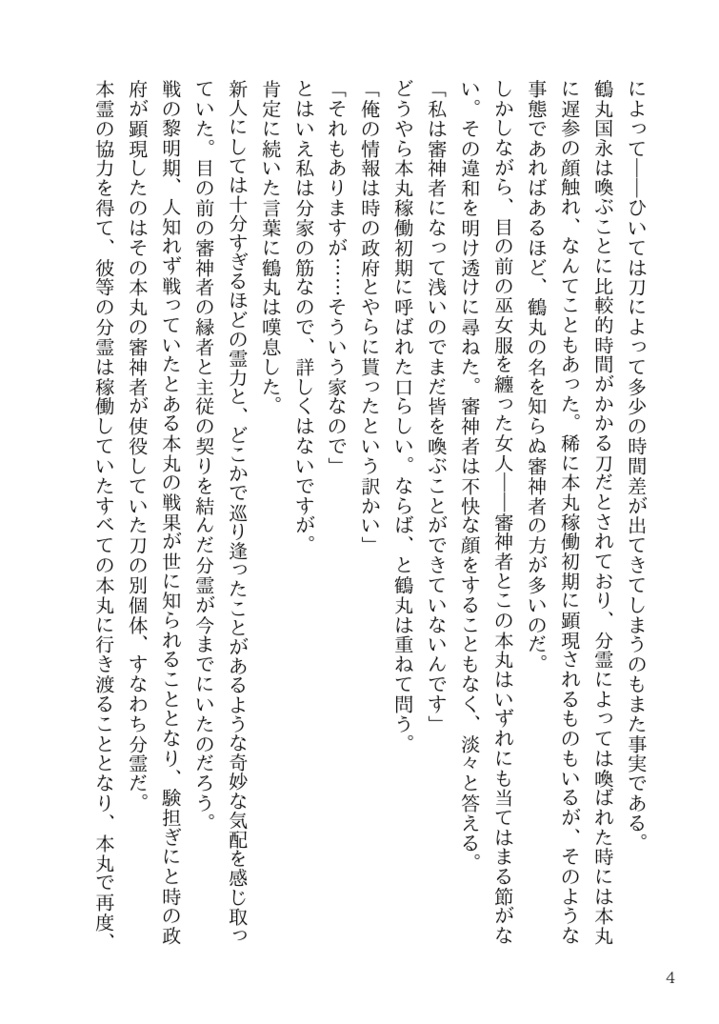 によって――ひいては刀によって多少の時間差が出てきてしまうのもまた事実である。
鶴丸国永は喚ぶことに比較的時間がかかる刀だとされており、分霊によっては喚ばれた時には本丸
に遅参の顔触れ、なんてこともあった。稀に本丸稼働初期に顕現されるものもいるが、そのような
事態であればあるほど、鶴丸の名を知らぬ審神者の方が多いのだ。
しかしながら、目の前の巫女服を纏った女人――審神者とこの本丸はいずれにも当てはまる節がな
い。その違和を明け透けに尋ねた。審神者は不快な顔をすることもなく、淡々と答える。
「私は審神者になって浅いのでまだ皆を喚ぶことができていないんです」
どうやら本丸稼働初期に呼ばれた口らしい。ならば、と鶴丸は重ねて問う。
「俺の情報は時の政府とやらに貰ったという訳かい」
「それもありますが……そういう家なので」
とはいえ私は分家の筋なので、詳しくはないですが。
肯定に続いた言葉に鶴丸は嘆息した。
新人にしては十分すぎるほどの霊力と、どこかで巡り逢ったことがあるような奇妙な気配を感じ取っ
ていた。目の前の審神者の縁者と主従の契りを結んだ分霊が今までにいたのだろう。
戦の黎明期、人知れず戦っていたとある本丸の戦果が世に知られることとなり、験担ぎにと時の政
府が顕現したのはその本丸の審神者が使役していた刀の別個体、すなわち分霊だ。
本霊の協力を得て、彼等の分霊は稼働していたすべての本丸に行き渡ることとなり、本丸で再度、
4